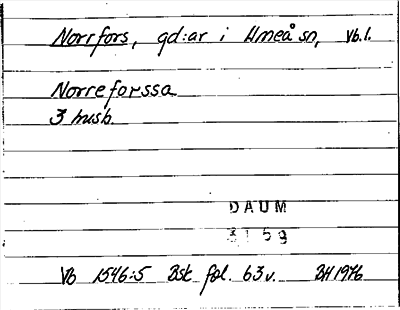 Norrfors, gd:ar i Umeå sn, Vb.l.
Norreforssa
3 husb.
DAUM
3159
Vb 1546:5 Bsk fol. 63v. BH 1976